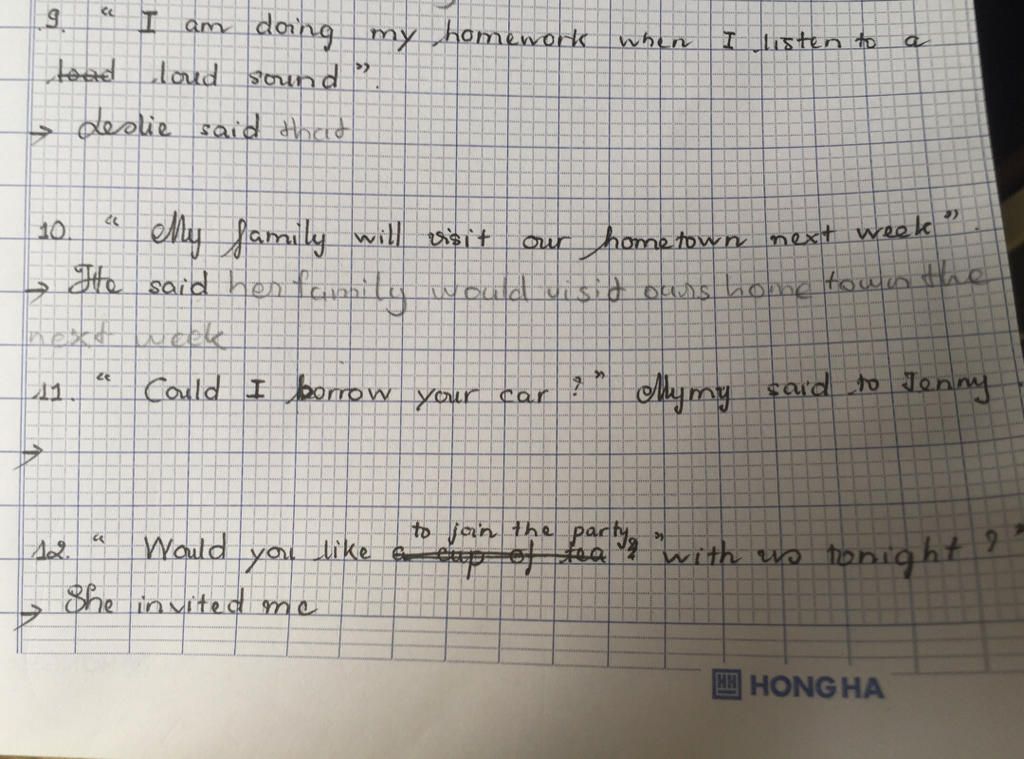 9. " I am doing my homework when I listen to a
loud sound ".
→ Leslie said that
10. " My family will visit our hometown next week ".
→ He said her family would visit ours home town the
next week
11. " Could I borrow your car ? " Mymy said to Jenny
→
to join the party
12. " Would you like a cup of tea ? " with us tonight ? "
→ She invited me
HH HONG HA